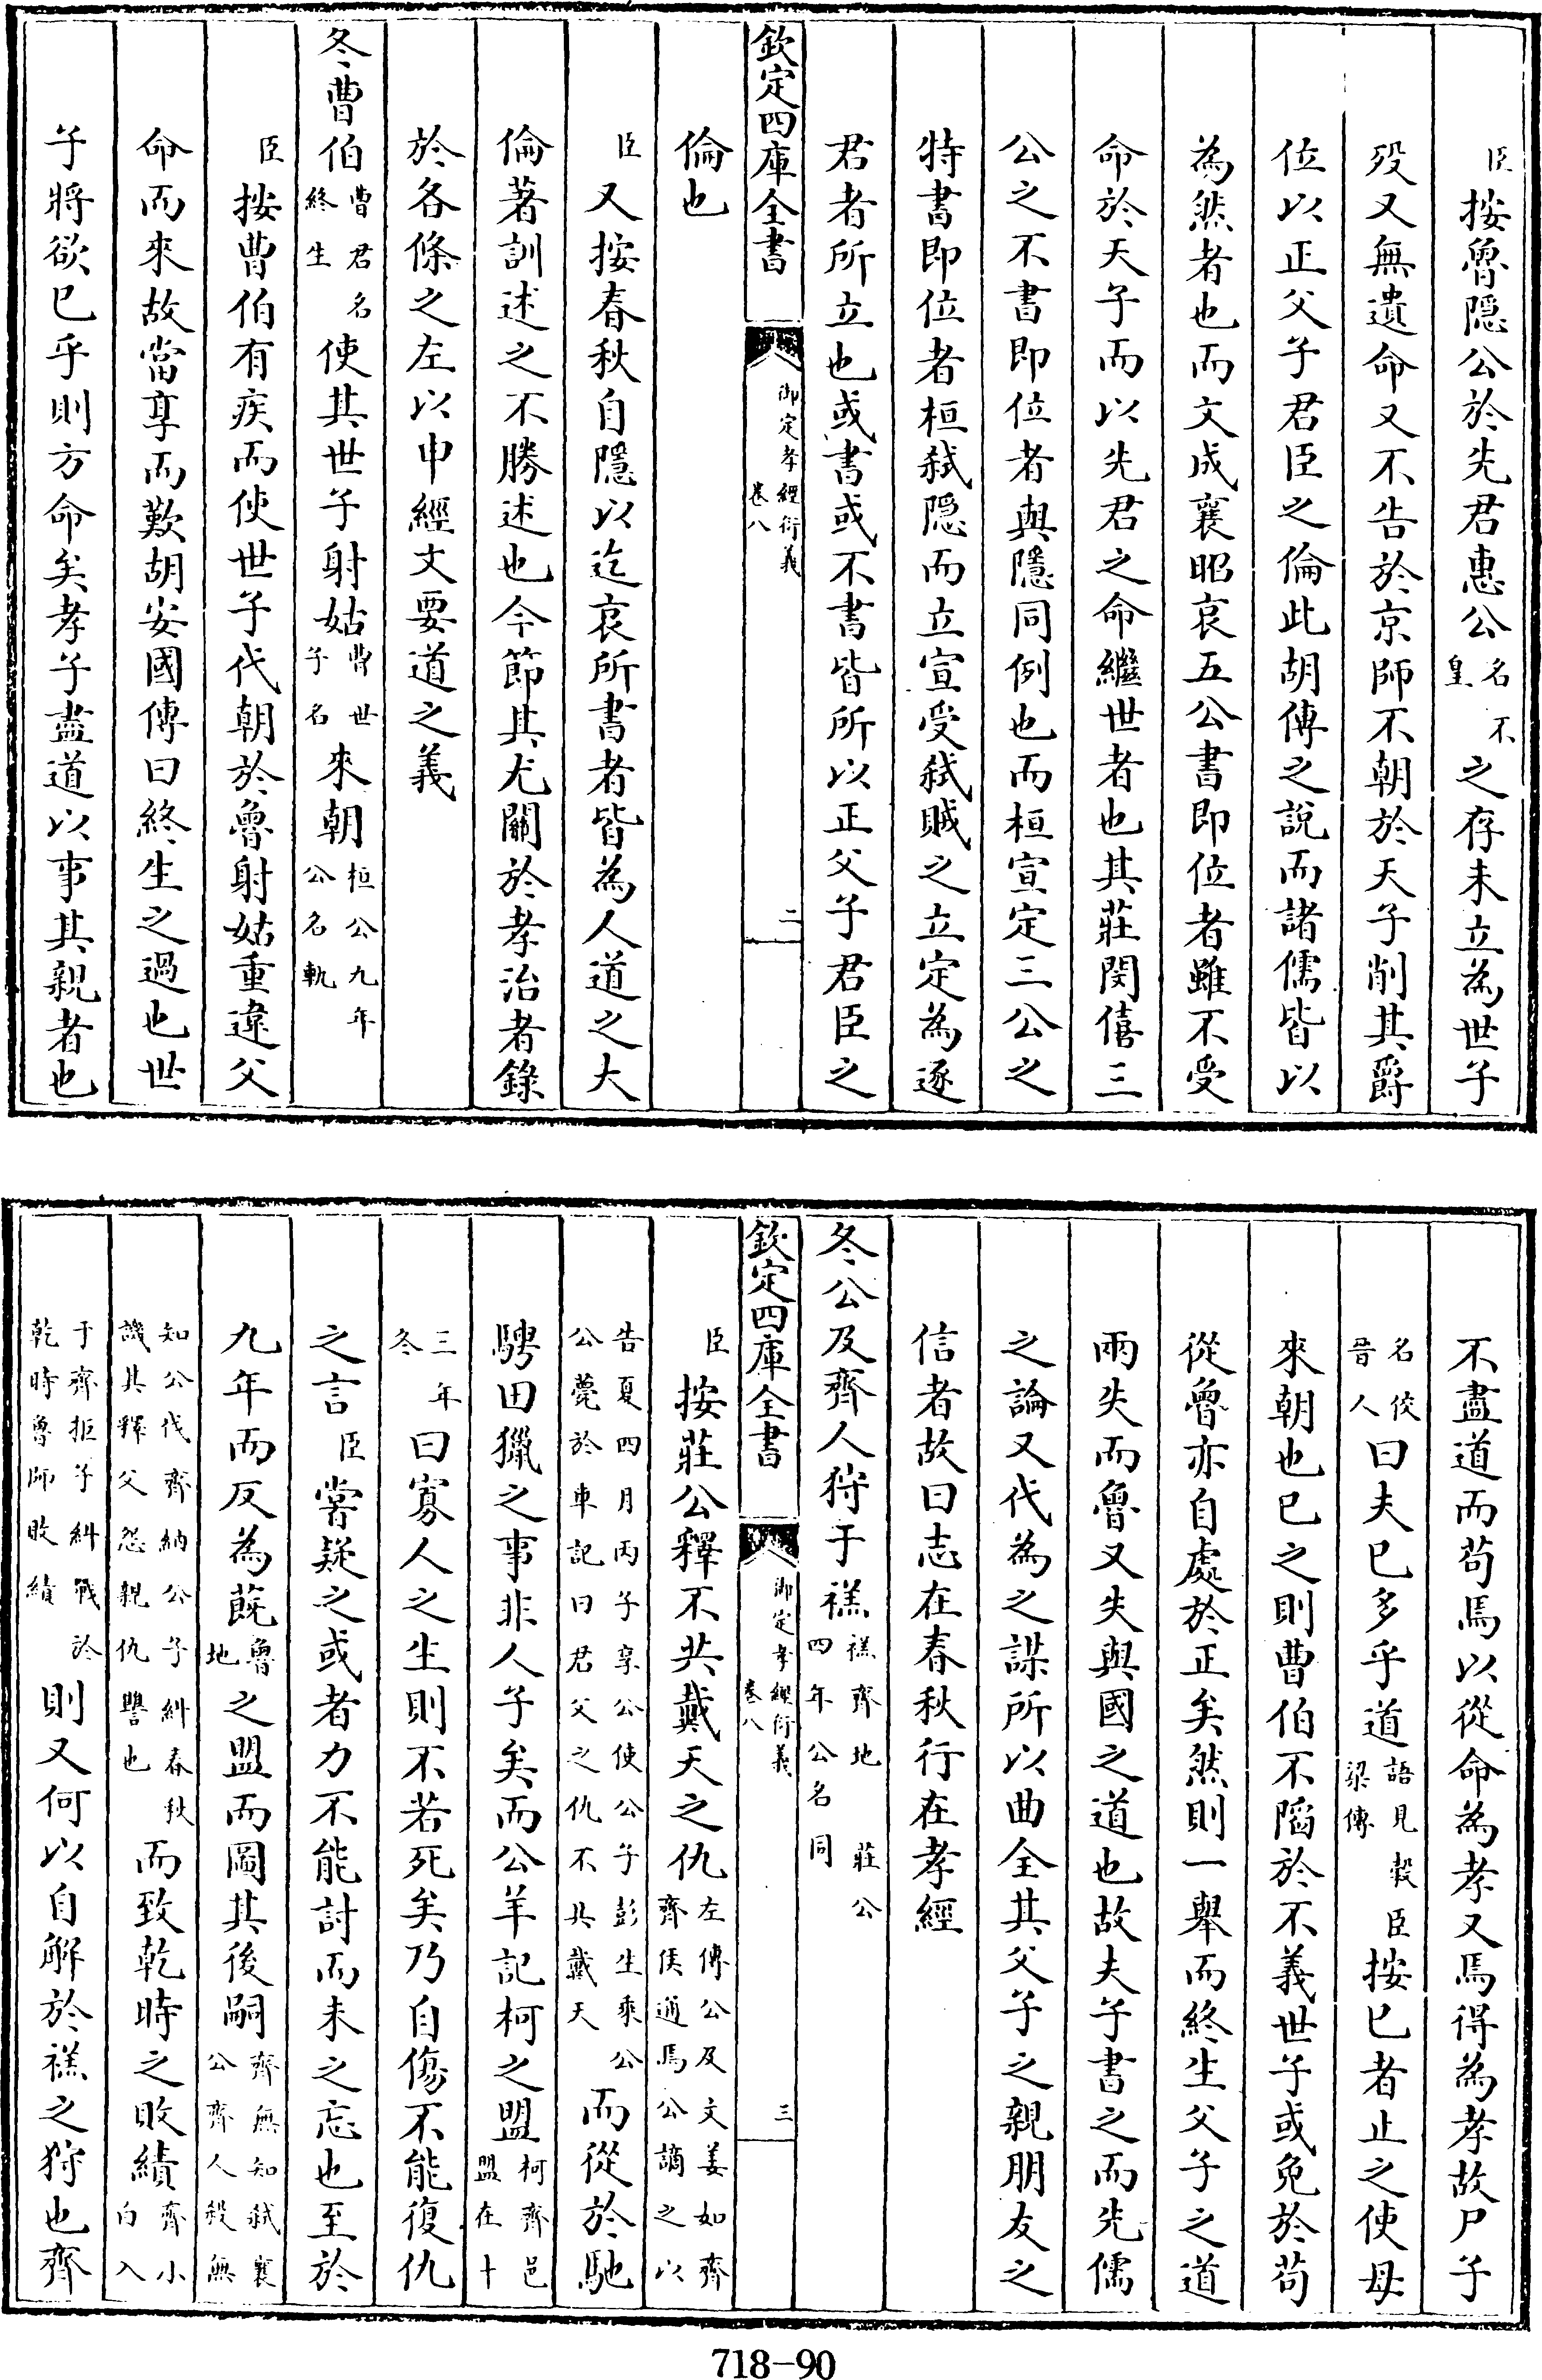 臣按魯隱公於先君惠公名不皇之存未立為世子
歿又無遺命又不告於京師不朝於天子削其爵
位以正父子君臣之倫此胡傳之說而諸儒皆以
為然者也而文成襄昭哀五公書即位者雖不受
命於天子而以先君之命繼世者也其莊閔僖三
公之不書即位者與隱同例也而桓宣定三公之
特書即位者桓弒隱而立宣受弒賊之立定為逐
君者所立也或書或不書皆所以正父子君臣之
欽定四庫全書 御定孝經衍義 卷八 二
倫也
臣又按春秋自隱以迄哀所書者皆為人道之大
倫著訓述之不勝述也今節其尤關於孝治者錄
於各條之左以申經文要道之義
冬曹伯曹君名終生使其世子射姑曹世子名來朝桓公九年公名軌
臣按曹伯有疾而使世子代朝於魯射姑重違父
命而來故當享而歎胡安國傳曰終生之過也世
子將欲已乎則方命矣孝子盡道以事其親者也
不盡道而苟焉以從命為孝又焉得為孝故尸子
名佼晉人曰夫已多乎道語見穀梁傳臣按已者止之使毋
來朝也已之則曹伯不陷於不義世子或免於苟
從魯亦自處於正矣然則一舉而終生父子之道
兩失而魯又失與國之道也故夫子書之而先儒
之論又代為之謀所以曲全其父子之親朋友之
信者故曰志在春秋行在孝經
冬公及齊人狩于禚禚齊地莊公四年公名同
欽定四庫全書 御定孝經衍義 卷八 三
臣按莊公釋不共戴天之仇左傳公及文姜如齊齊侯通焉公謫之以
告夏四月丙子享公使公子彭生乘公公薨於車記曰君父之仇不共戴天而從於馳
騁田獵之事非人子矣而公羊記柯之盟柯齊邑盟在十
三年冬曰寡人之生則不若死矣乃自傷不能復仇
之言臣嘗疑之或者力不能討而未之忘也至於
九年而反為蔇魯地之盟而圖其後嗣齊無知弒襄公齊人殺無
知公伐齊納公子糾春秋譏其釋父怨親仇讐也而致乾時之敗績齊小白入
于齊拒子糾戰於乾時魯師敗績則又何以自解於禚之狩也齊
718-90